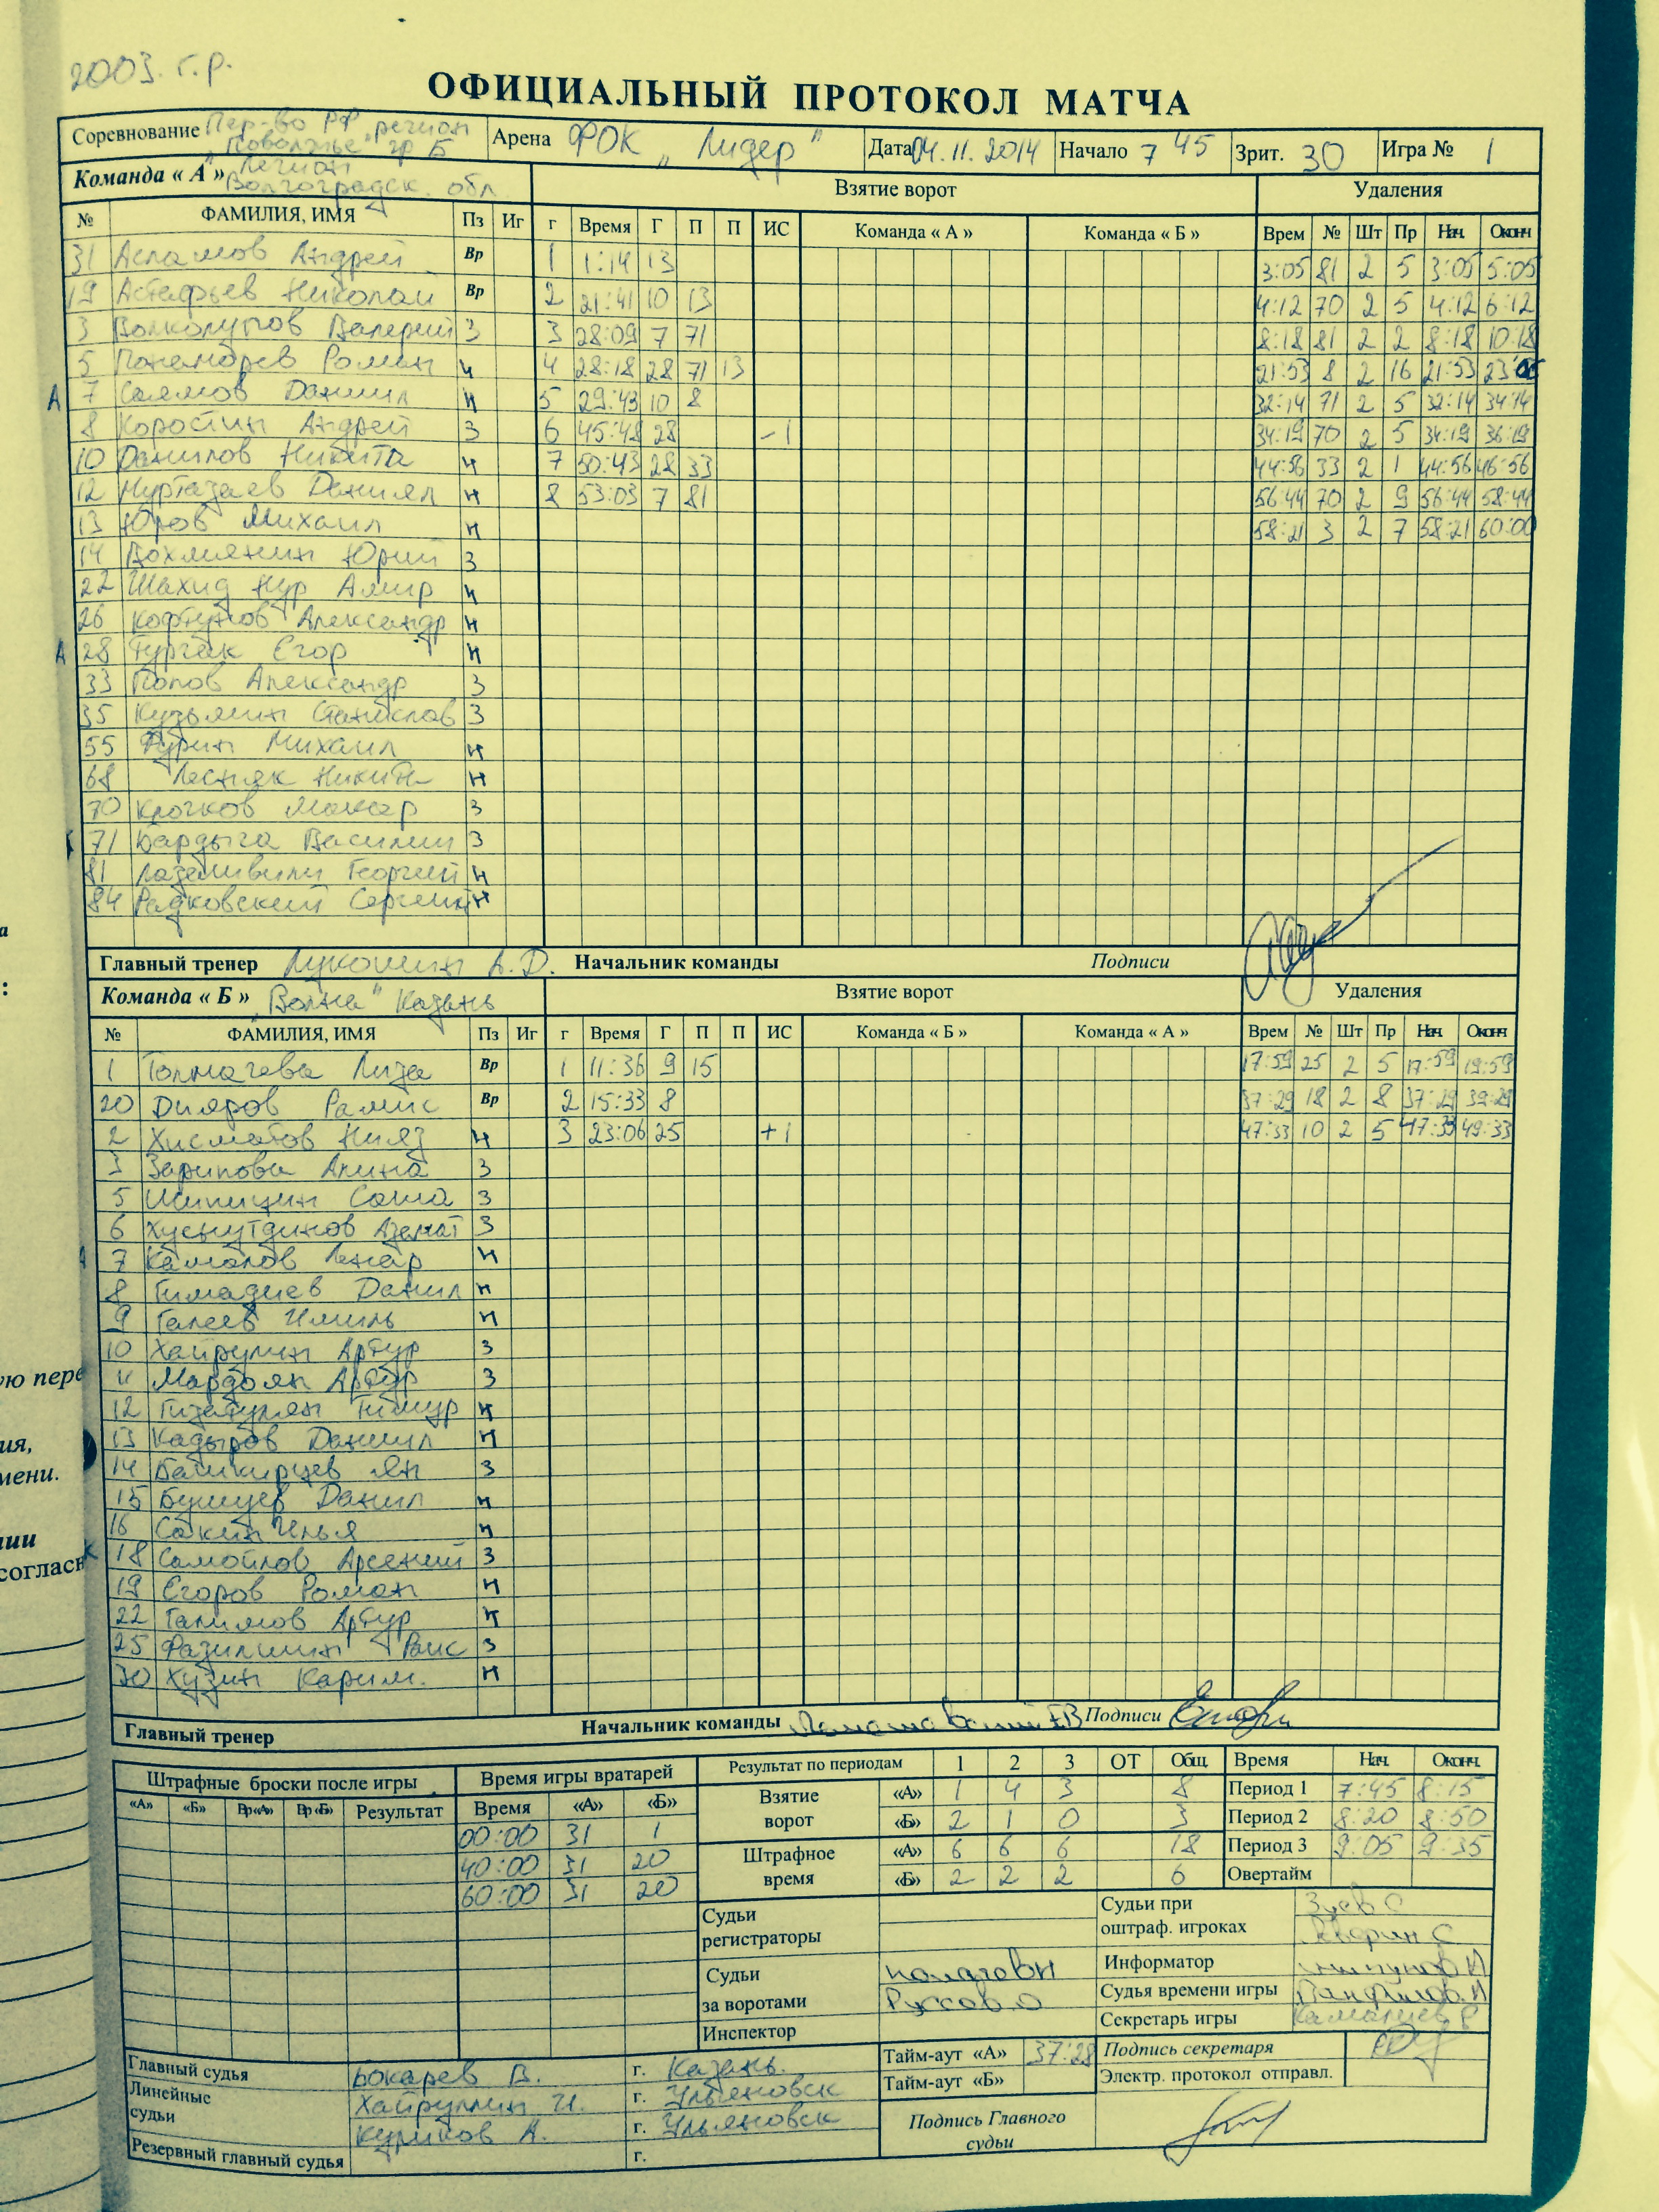 2003. г.р.
ОФИЦИАЛЬНЫЙ ПРОТОКОЛ МАТЧА
Соревнование Пер-во РФ регион "Поволжье" гр Б Арена ФОК "Лидер" Дата 04.11.2014 Начало 7 45 Зрит. 30 Игра № 1
Команда « А » "Легион Волгоградск. обл Взятие ворот Удаления
№ ФАМИЛИЯ, ИМЯ Пз Иг г Время Г П П ИС Команда « А » Команда « Б » Врем № Шт Пр Нач. Оконч
31 Асламов Андрей Вр 1 1:14 13 3:05 81 2 5 3:05 5:05
19 Астафьев Николай Вр 2 21:41 10 13 4:12 70 2 5 4:12 6:12
3 Валерий З 3 28:09 7 71 8:18 81 2 2 8:18 10:18
5 Роман Н 4 28:18 28 71 13 21:53 8 2 16 21:53
А 7 Саямов Даниил Н 5 29:43 10 8 32:14 71 2 5 32:14 34:14
8 Коростин Андрей З 6 45:48 28 -1 34:19 70 2 5 34:19 36:19
10 Данилов Никита Н 7 50:43 28 33 44:56 33 2 1 44:56 46:56
12 Муртазаев Даниял Н 8 53:03 7 81 56:44 70 2 9 56:44 58:44
13 Юров Михаил Н 58:21 3 2 7 58:21 60:00
14 Вохмянин Юрий З
22 Шахид Нур Амир Н
26 Кофтунов Александр Н
А 28 Турчак Егор Н
33 Попов Александр З
35 Кузьмин Станислав З
55 Фурин Михаил Н
68 Лесняк Никита Н
70 Клочков Макар З
71 Бардыга Василий З
81 Георгий Н
84 Радковский Сергей Н
Главный тренер Лукошин А.Д. Начальник команды Подписи
Команда « Б » "Волна" Казань Взятие ворот Удаления
№ ФАМИЛИЯ, ИМЯ Пз Иг г Время Г П П ИС Команда « Б » Команда « А » Врем № Шт Пр Нач. Оконч
1 Толмачева Лиза Вр 1 11:36 9 15 17:59 25 2 5 17:59 19:59
20 Дияров Рамис Вр 2 15:33 8 37:29 18 2 8 37:29 39:29
2 Хисматов Нияз Н 3 23:06 25 +1 47:33 10 2 5 47:33 49:33
3 Зарипова Алина З
5 Шипицин Саша З
6 Хуснутдинов Азамат З
7 Камалов Ленар Н
8 Гимадиев Данил Н
9 Галеев Имиль Н
10 Хайрулин Артур З
11 Мардоян Артур З
12 Тимур Н
13 Кадыров Даниил Н
14 Башкирцев Ян З
15 Бушуев Данил Н
16 Сакин Илья Н
К 18 Самойлов Арсений З
19 Егоров Роман Н
22 Галимов Артур Н
25 Фазлышин Раис З
30 Хузин Карим. Н
Главный тренер Начальник команды Подписи
Штрафные броски после игры Время игры вратарей Результат по периодам 1 2 3 ОТ Общ. Время Нач. Оконч.
«А» «Б» Вр «А» Вр «Б» Результат Время «А» «Б» Взятие ворот «А» 1 4 3 8 Период 1 7:45 8:15
00:00 31 1 «Б» 2 1 0 3 Период 2 8:20 8:50
40:00 31 20 Штрафное время «А» 6 6 6 18 Период 3 9:05 9:35
60:00 31 20 «Б» 2 2 2 6 Овертайм
Судьи регистраторы Судьи при оштраф. игроках Зуев С
Судьи за воротами Руссов О Информатор
Судья времени игры Панфилов А
Инспектор Секретарь игры Камалиев Р
Главный судья Бокарев В. г. Казань. Тайм-аут «А» 37:28 Подпись секретаря
Линейные судьи Хайруллин И. г. Ульяновск Тайм-аут «Б» Электр. протокол отправл.
Куликов А. г. Ульяновск Подпись Главного судьи
Резервный главный судья г.